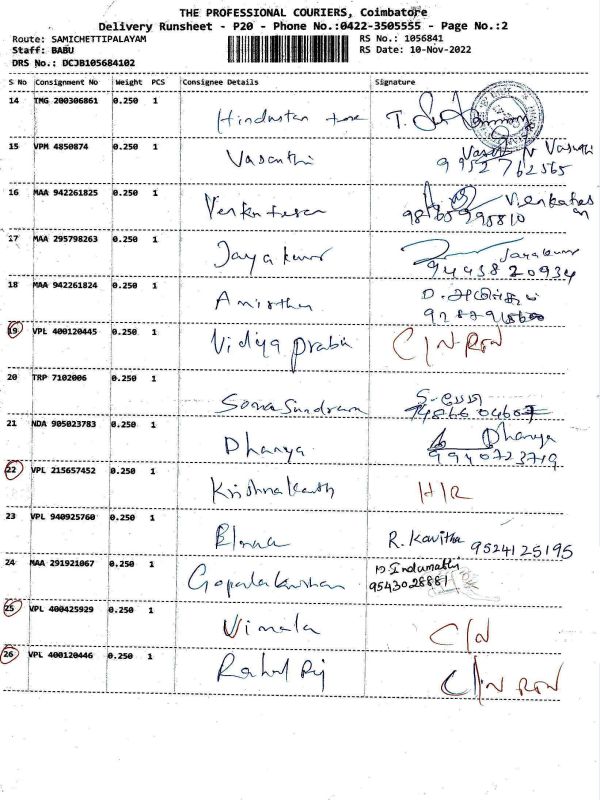 THE PROFESSIONAL COURIERS, Coimbatore
Delivery Runsheet - P20 - Phone No.:0422-3505555 - Page No.:2
Route: SAMICHETTIPALAYAM RS No.: 1056841
Staff: BABU RS Date: 10-Nov-2022
DRS No.: DCJB105684102
S No Consignment No Weight PCS Consignee Details Signature
14 TMG 200306861 0.250 1
Hindustan T.
15 VPM 4850874 0.250 1
Vasanthi Vasanthi
9952762565
16 MAA 942261825 0.250 1
Venkatesan Venkates
an
17 MAA 295798263 0.250 1
Jayakumar Jayakumar
9443820934
18 MAA 942261824 0.250 1
Amirtha D.
19 VPL 400120445 0.250 1
Vidiya Prabu C/N-RTN
20 TRP 7102006 0.250 1
Soma Sundram
21 NDA 905023783 0.250 1
Dhanya Dhanya
9940723719
22 VPL 215657452 0.250 1
Krishnakanth H/R
23 VPL 940925760 0.250 1
R. Kavitha 9524125195
24 MAA 291921067 0.250 1
Gopalakrishnan Indumathi
9543028881
25 VPL 400425929 0.250 1
Vimala C/N
26 VPL 400120446 0.250 1
Rahul Rj C/N RTN